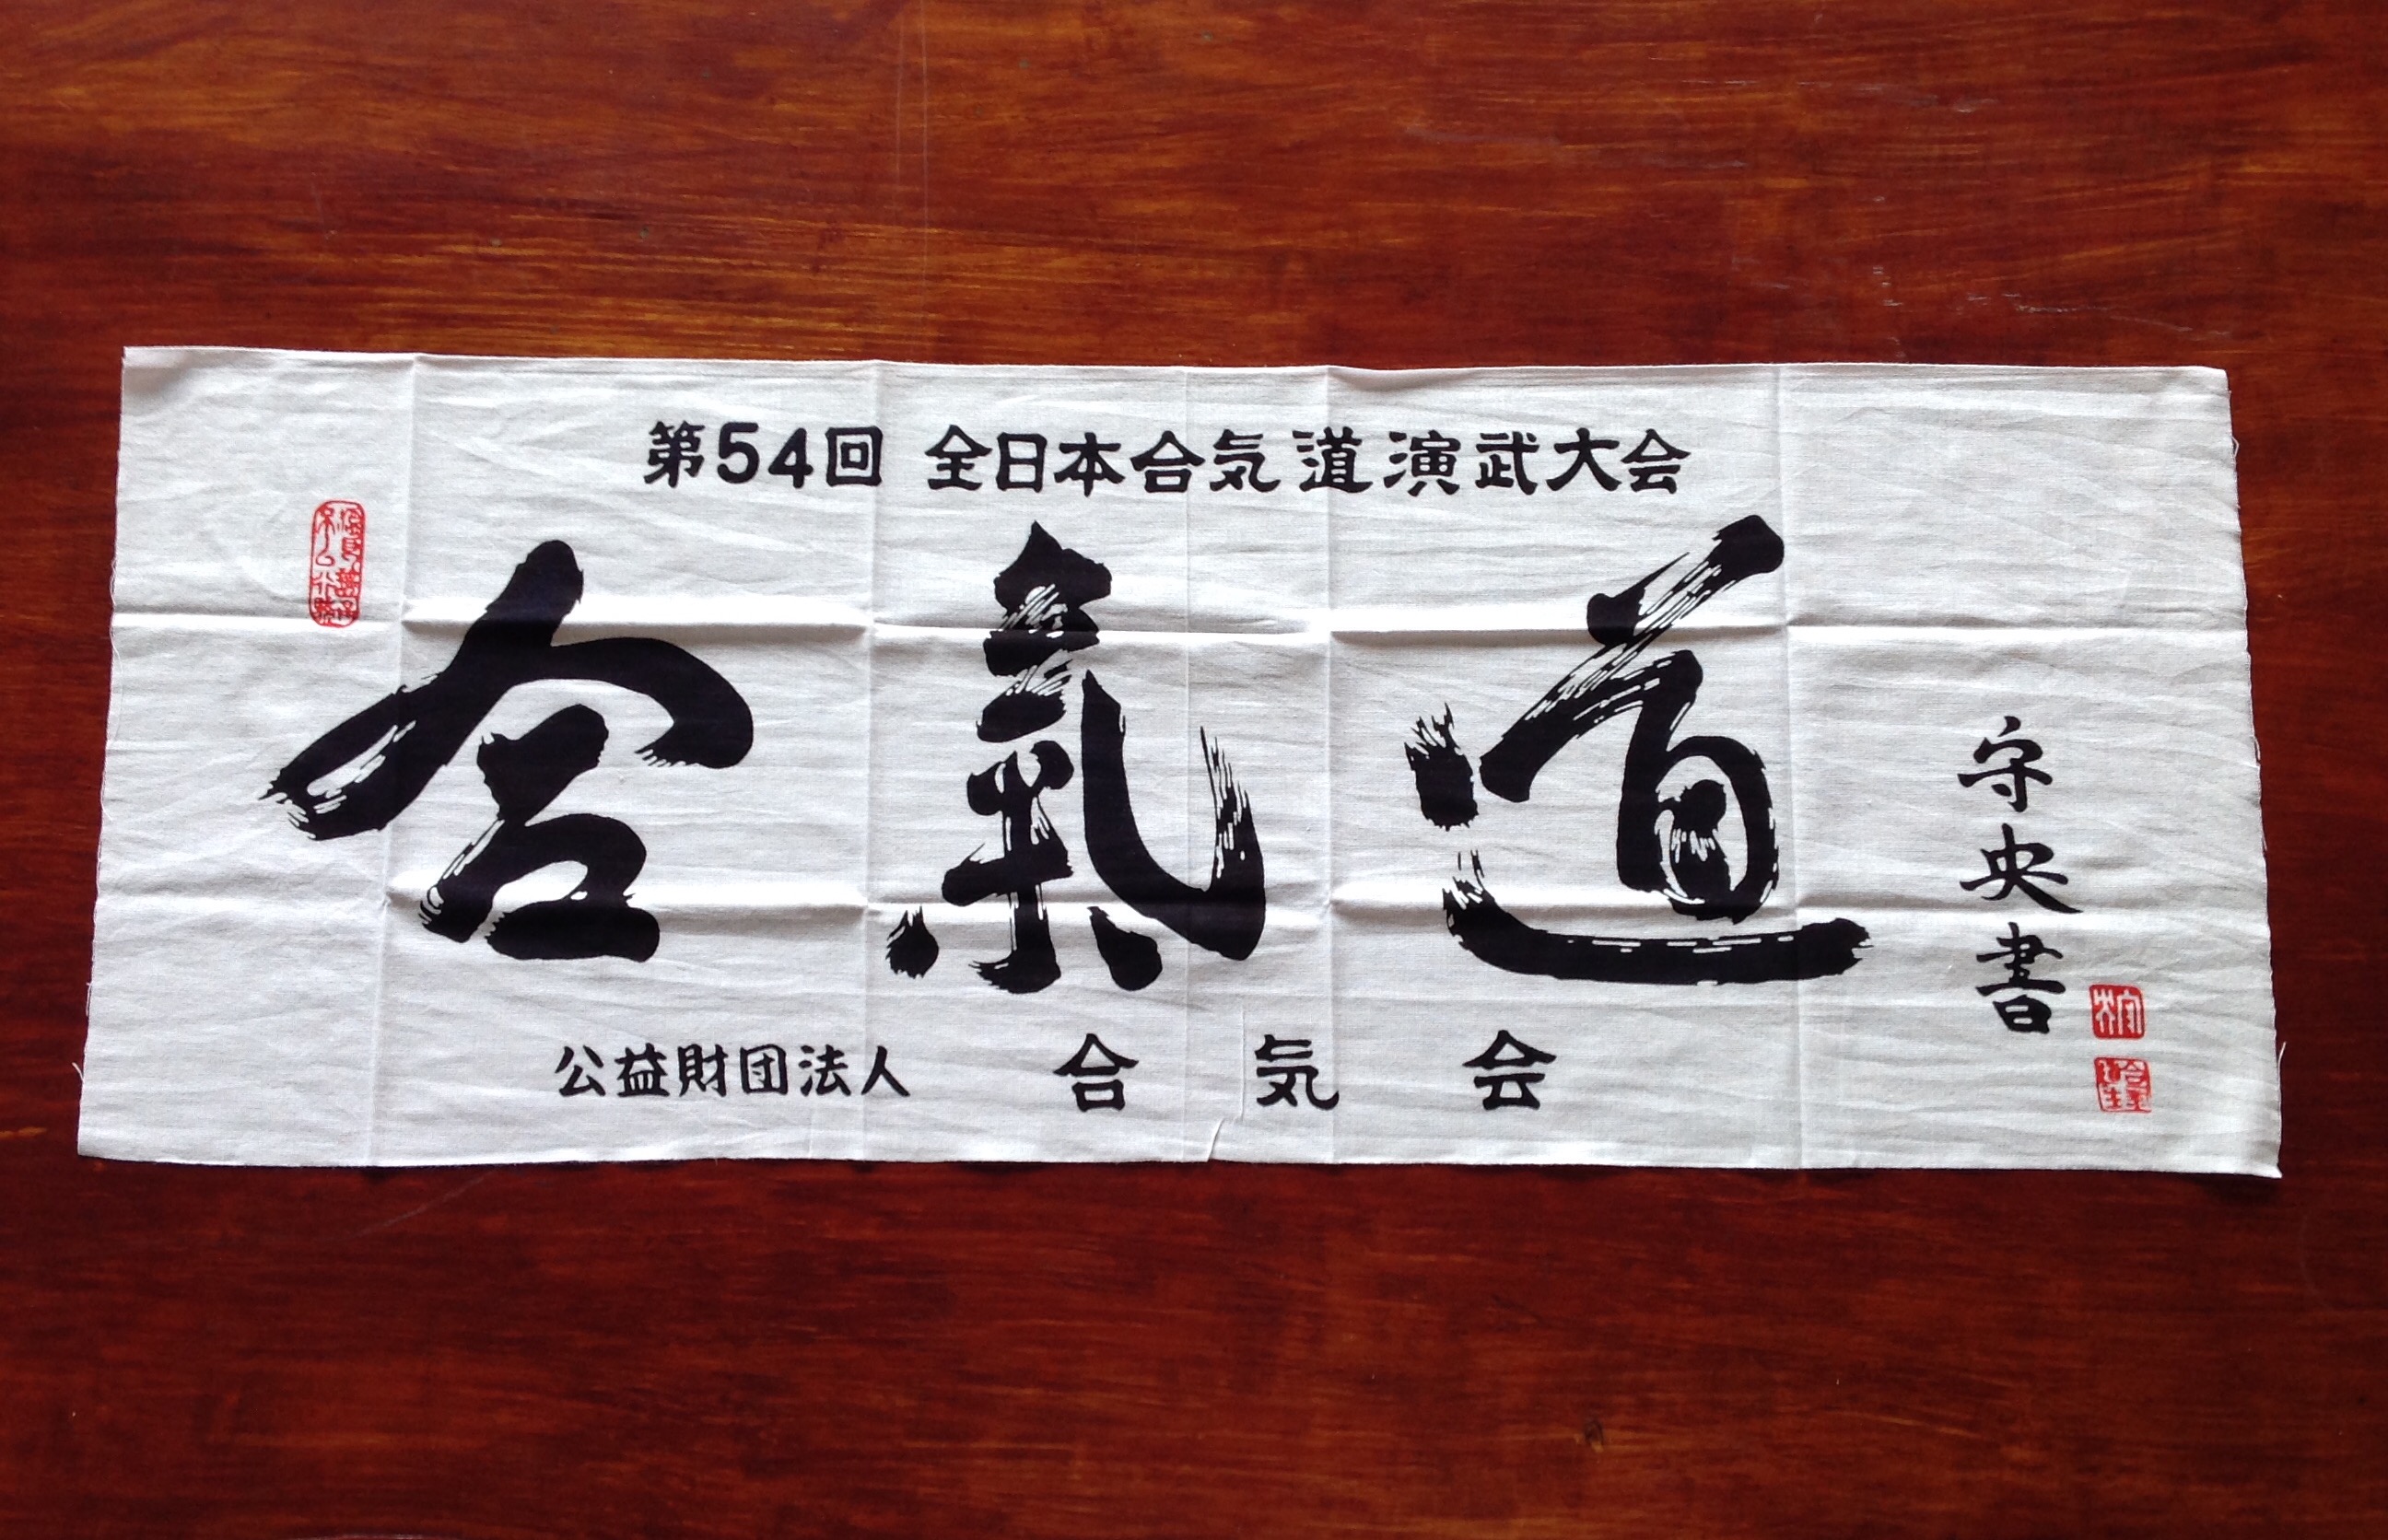 第54回 全日本合気道演武大会
合氣道
守央書
公益財団法人 合気会